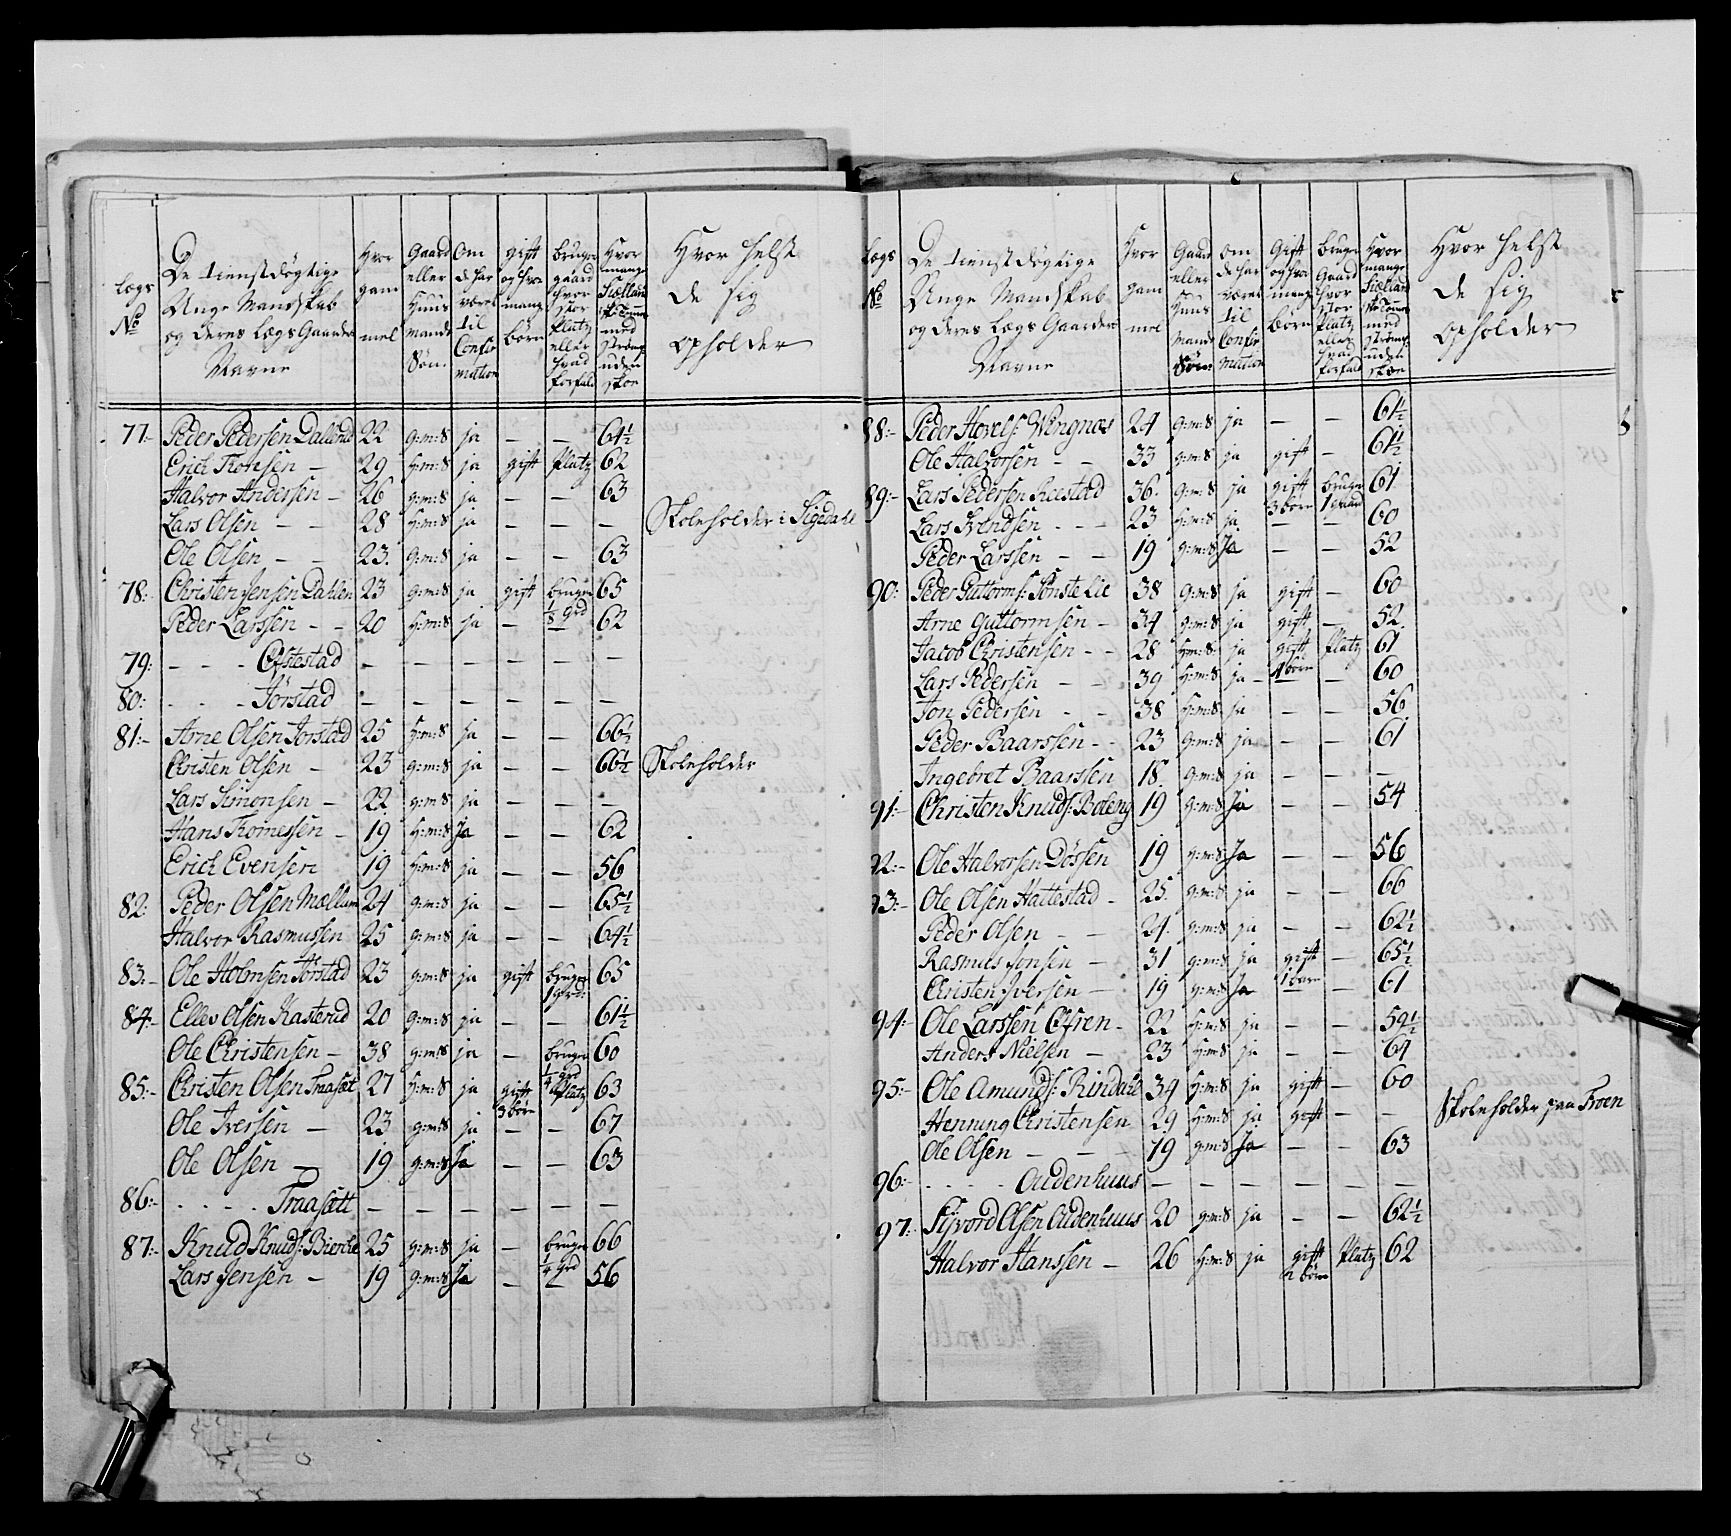 Lægs No | De tienstdøgtige Unge Mandskab og deres Lægs Gaarders Navne | Hvor gammel | Gaard eller Huusmands Søn. | Om de har været til Confirmation | gift og hvor mange børn | bruger gaard hvor stor Platz eller hvad forfald | Hvor mange Siællandske Tommer med strømper uden skoe | Hvor helst de sig opholder
77:- Peder Pedersen Dallerud 22 g:m:S ja — — 64½
Erich Tronsen — 29 H:m:S ja gift Platz 62
Halvor Andersen - 26 g:m:S ja — — 63
Lars Olsen — — 28 H:m:S ja — — — Skoleholder i Sigedahl
Ole Olsen — — 23. g:m:S ja — — 63
78:- Christen Jensen Dahlen 23 g:m:S ja gift bruger ⅛ grd 65
Peder Larssen - - 20 H:m:S ja — — 62
79: — - - Efstestad — — — — — —
80: - - - Jørstad — — — — — —
81:- Arne Olsen Jorstad 25 H:m:S ja — — 66½
Christen Olsen — 23 g:m:S ja — — 66½ Skoleholder
Lars Simonsen — 22 g:m:S ja — — —
Hans Tomessen - 19 H:m:S Ja — — 62
Erich Evensen 19 H:m:S ja — — 56
82: Peder Olsen Mællum 24 g:m:S ja — — 65½
Halvor Rasmussen 25 g:m:S ja — — 64½
83:- Ole Holmsen Jørstad 23 g:m:S ja gift bruger 1 grd: 65
84:- Ellev Olsen Kasterud 20 g:m:S ja — — 61½
Ole Christensen - 38 g:m:S ja — bruger ¼ grd 60
85:- Christen Olsen Traaset 27 H:m:S ja gift 3 børn Platz 63
Ole Iversen — 23 g:m:S ja — — 67
Ole Olsen — 19 g:m:S Ja — — 63
86:- - - - - Traasett — — — — — —
87:- Knud Knuds: Bierche 25 g:m:S ja — bruger ¼ grd 66
Lars Jensen — 19 g:m:S Ja — — 56
Lægs No | De tienstdøgtige Unge Mandskab og deres Lægs Gaarders Navne | Hvor gammel | Gaard eller Huus mands Søn. | Om de har været til Confirmation | Gift og hvor mange børn | bruger Gaard hvor stor Platz eller hvad forfald | Hvor mange Siællandske Tommer med strømper uden skoe | Hvor helst de sig opholder
88:- Peder Hovels: Wengnæs 24 g:m:S ja — — 61½
Ole Halvorsen - - 33 g:m:S ja gift — 61½
89:- Lars Pedersen Reestad 36. g:m:S ja gift 3 børn bruger 1 gaard 61
Lars Svendsen - - - 23 H:m:S ja — — 60
Peder Larssen — — 19 g:m:S Ja — — 52
90: Peder Guttorms: Sønstelie 38 g:m:S ja gift — 60
Arne Guttormsen - 34 g:m:S ja gift — 52.
Jacob Christensen - - 28 H:m:S ja gift 1 børn Platz 61
Lars Pedersen - - 39 H:m:S ja — — 60
Jon Pedersen - - 38 H:m:S ja — — 56
Peder Baarssen - - 23 g:m:S ja — — 61
Ingebret Baarssen 18. g:m:S ja — — —
91:- Christen Knuds: Boleng 19 g:m:S Ja — — 54
92:- Ole Halvorsen Døssen 19 g:m:S Ja — — 56
93:- Ole Olsen Hattestad - 25. g:m:S ja — — 66
Peder Olsen — — 24. g:m:S ja — — 62½
Rasmus Jonsen — 31 g:m:S ja gift 1 barn — 65½
Christen Iversen — 19 g:m:S Ja — — 61
94:- Ole Larssen Efren - 22 H:m:S ja — — 59½
Anders Nielsen — 23 H:m:S ja — — 64
95:- Ole Amunds: Rindahl 34 H:m:S ja gift — 60
Henning Christensen 29 H:m:S ja gift — — Skoleholder paa Froen
Ole Olsen — — — 19 g:m:S Ja — — 63
96:- - - - - Oudenhuus — — — — — —
97:- Sifvord Olsen Oudenhuus 20 g:m:S ja — — 62½
Halvor Hanssen — 26 H:m:S ja gift 2 børn Platz 62